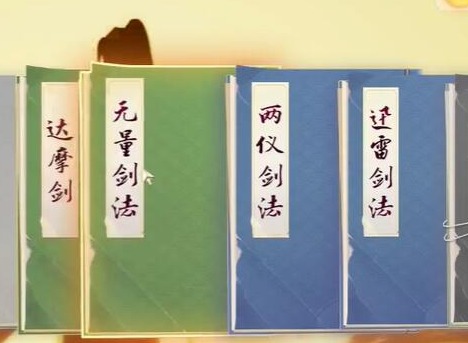 达摩剑
无量剑法
两仪剑法
迅雷剑法